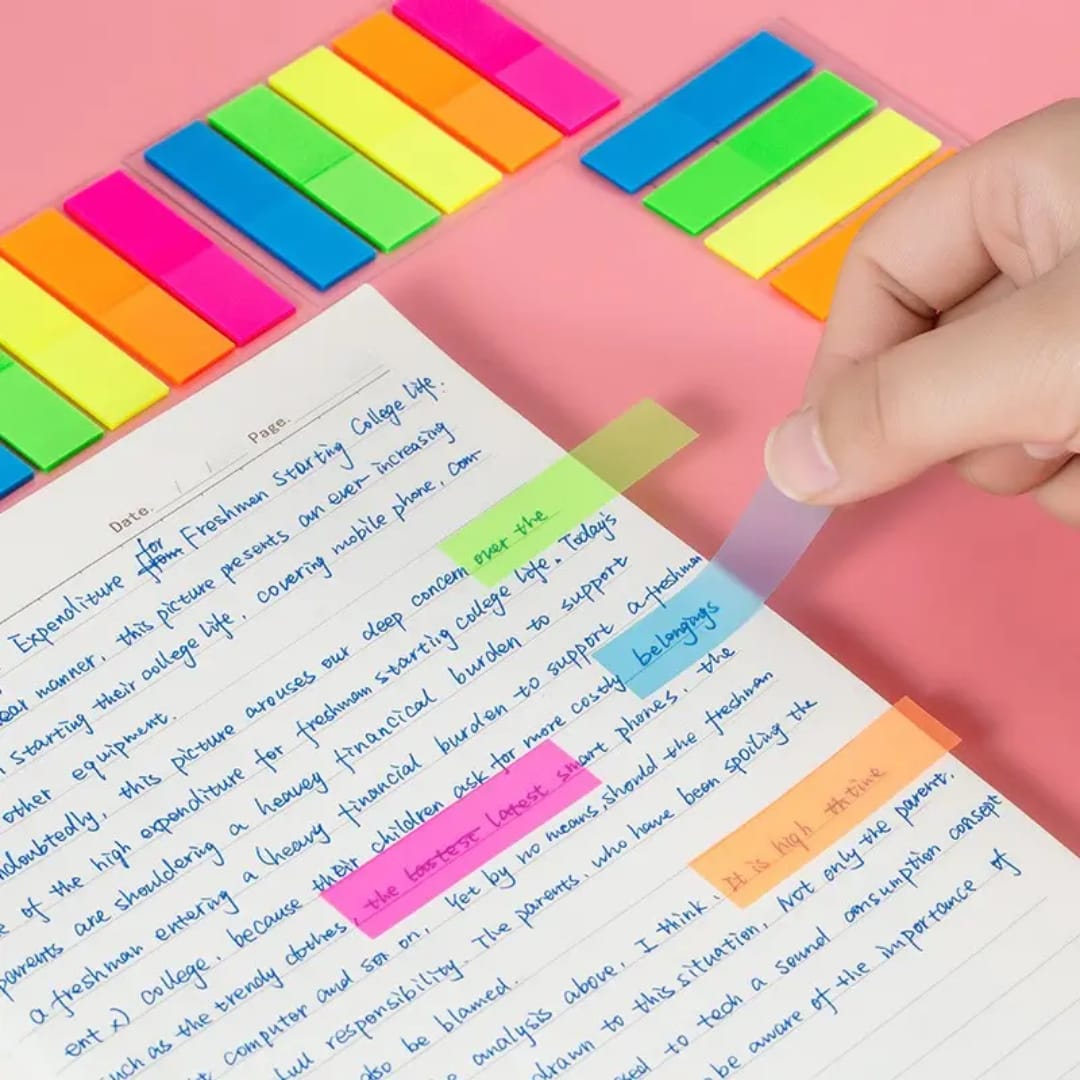 Date. / / Page.
Expenditure for from Freshmen Starting College life.
ear manner, this picture presents an ever-increasing
starting their college life, covering mobile phone, com-
other equipment.
ndoubtedly, this picture arouses our deep concern over the
of the high expenditure for freshmam starting college life. Todays
parents are shouldering a heavey financical burden to support
a freshman entering a (heavy financial burden to support a freshman
ent x) college, because their children ask for more costly belongings
such as the trendy clothes, the lastest latest smart phones, the
computer and so on. Yet by no means, should the freshman
full responsibility. The parents, who have been spoiling the
also be blamed.
analysis above, I think, It is high thtime
drawn to this situation, Not only the parent.
sed to tech a sound consumption consept
be aware of the importance of